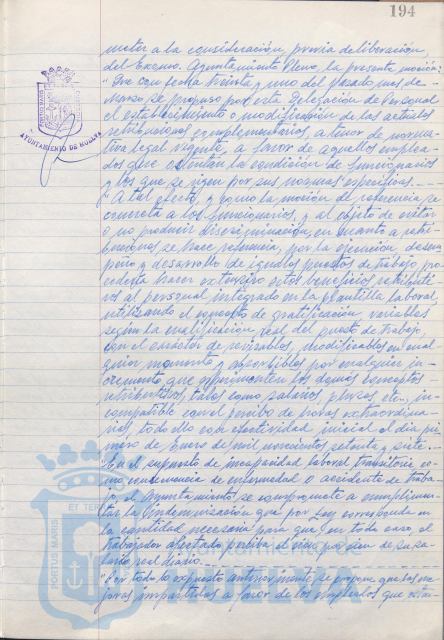 194
meter a la consideración, previa deliberación,
del Excmo. Ayuntamiento Pleno, la presente moción:
"Que con fecha treinta y uno del pasado mes de
Marzo, se propuso por esta Delegación de Personal
el establecimiento o modificación de las actuales
retribuciones complementarias, a tenor de norma-
tiva legal vigente, a favor de aquellos emplea-
dos que ostentan la condición de funcionarios
y los que se rigen por sus normas específicas.
"A tal efecto, y como la moción de referencia se
concreta a los funcionarios, y al objeto de evitar
o no producir discriminación, en cuanto a retri-
buciones se hace referencia, por la ejecución, desem-
peño y desarrollo de iguales puestos de trabajo,
hacer extensivo estos beneficios retributi-
vos al personal integrado en la plantilla laboral,
utilizando el concepto de gratificación, variables
según la calificación real del puesto de trabajo,
con el carácter de revisables, modificables en cual-
quier momento y absorbibles por cualquier in-
cremento que experimenten los demás conceptos
retributivos, tales como salarios, pluses, etc., in-
compatible con el percibo de horas extraordina-
rias, todo ello con efectividad inicial el día pri-
mero de Enero de mil novecientos setenta y siete.
"En el supuesto de incapacidad laboral transitoria co-
mo consecuencia de enfermedad o accidente de traba-
jo, el Ayuntamiento se compromete a cumplimen-
tar la indemnización que por Ley corresponda en
la cantidad necesaria para que, en todo caso, el
trabajador afectado perciba el cien por cien de su sa-
lario real diario.
"Por todo lo expuesto anteriormente, se propone que las me-
joras impartidas a favor de los empleados que osten-
AYUNTAMIENTO DE HUELVA
PORTUS MARIS
ET TER
HUELVA